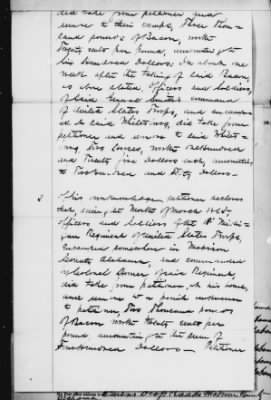 did take from petitioner and
remove to their camps, Three thou-
sand pounds of Bacon, worth
Twenty cents per pound, amounting to
Six hundred Dollars. In about one
week after the taking of said Bacon,
as above stated, officers and soldiers,
of said General Smith's command
of United States Troops, and encamped
at said Whitesburg, did take from
petitioner and remove to said Whites-
burg, Two horses, worth One hundred
and Twenty five Dollars each, amounting
to Two hundred and Fifty Dollars.
3 This petitioner declares
that, during the Month of March 1865,
officers and soldiers of the Michi-
gan Regiment of United States Troops,
Encamped somewhere in Madison
County Alabama, and commanded
Colonel of said Regiment,
did take from petitioner, at his home,
and remove to a point unknown
to petitioner, Two Thousand pounds
of Bacon worth Twenty cents per
pound, amounting to the sum of
Four hundred Dollars — Petitioner